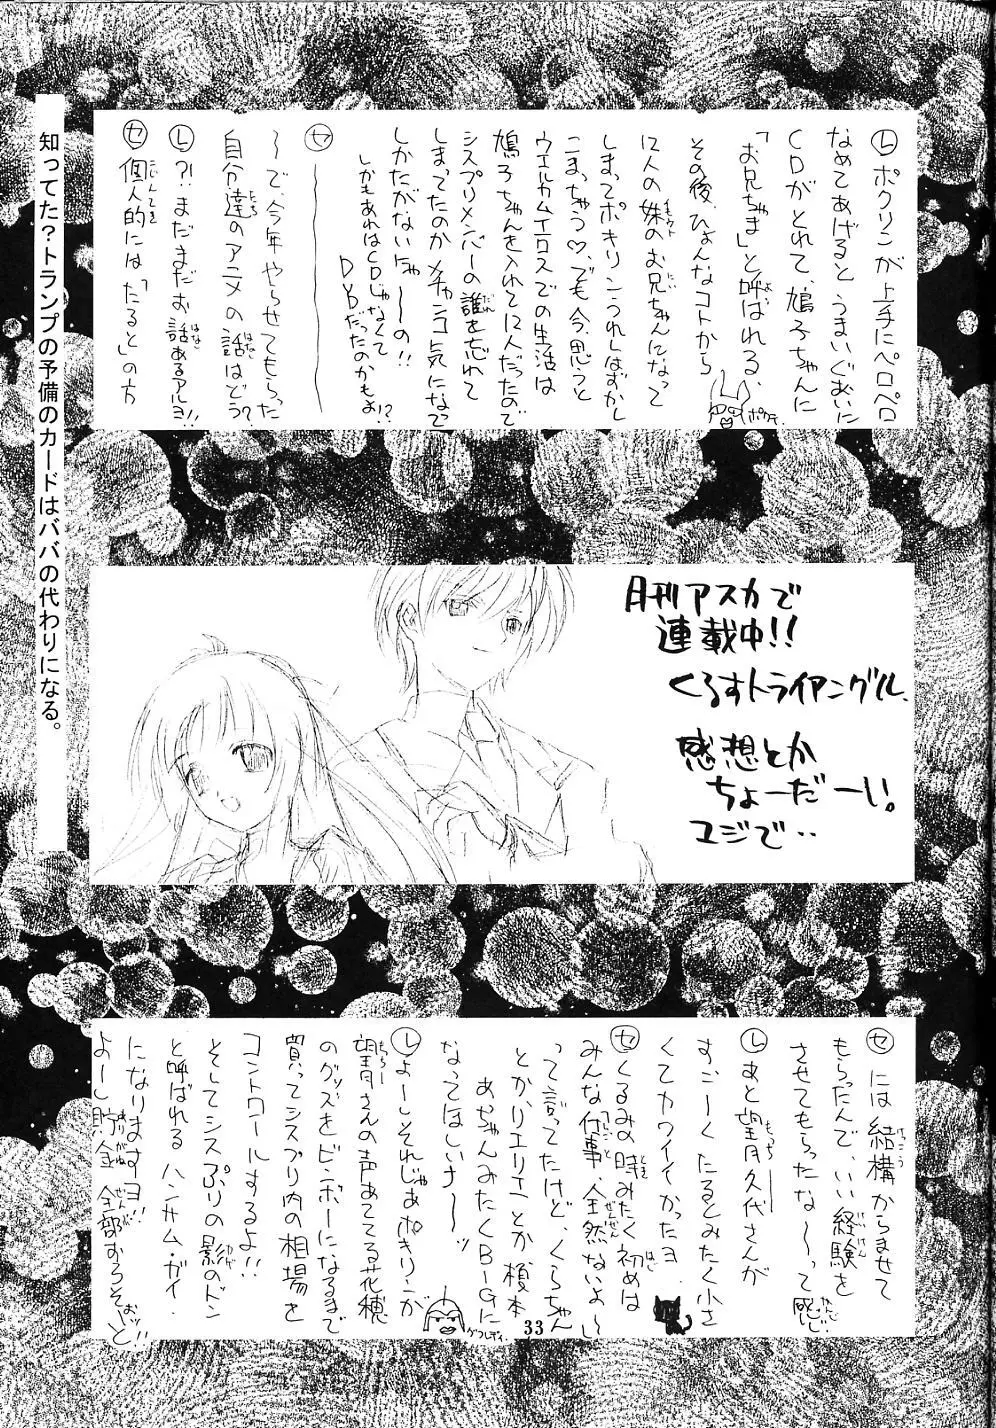 Ⓛポクリンが上手にペロペロ
なめてあげるとうまいぐあいに
CDがとれて、鳩子ちゃんに
「お兄ちゃま」と呼ばれる、
その後、ひょんなコトから
12人の妹のお兄ちゃんになって
しまってポキリンうれしはずかし
こまっちゃう♡でも今、思うと
ウエルカムエロスでの生活は
鳩子ちゃんを入れて12人だったので
シスプリメンバーの誰を忘れて
しまってたのかメチャンコ気になって
しかたがないにゃ〜〜の!!
しかもあれはCDじゃなくて
DVDだったのかもよ!?
ポクテ
㋝
〜で、今年やらせてもらった
自分達のアニメの話はどう?
Ⓛ?!まだまだお話あるアルヨ!!
㋝個人的には「たると」の方
知ってた?トランプの予備のカードはババの代わりになる。
月刊アスカで
連載中!!
くろすトライアングル、
感想とか
ちょーだーい。
ユジで‥
㋝には結構からませて
もらったんで、いい経験を
させてもらったな〜って感じ
Ⓛあと望月久代さんが
すごーくたるとみたく小さ
くてカワイイかったヨ
㋝くるみの時みたく初めは
みんな仕事、全然ないよ〜
って言ってたけど、くらちゃん
とか、リエリエとか榎本
あちゃんみたくBIGに
なってほしいナ〜〜ッ
Ⓛよーしそれじゃあポキリンが
望月さんの声あててる花穂
のグッズをビンボーになるまで
買ってシスプリ内の相場を
コントロールするよ!!
そしてシスぷりの影のドン
と呼ばれるハンサム・ガイ
になりますヨ!!
よーし貯金全部おろそっと
33